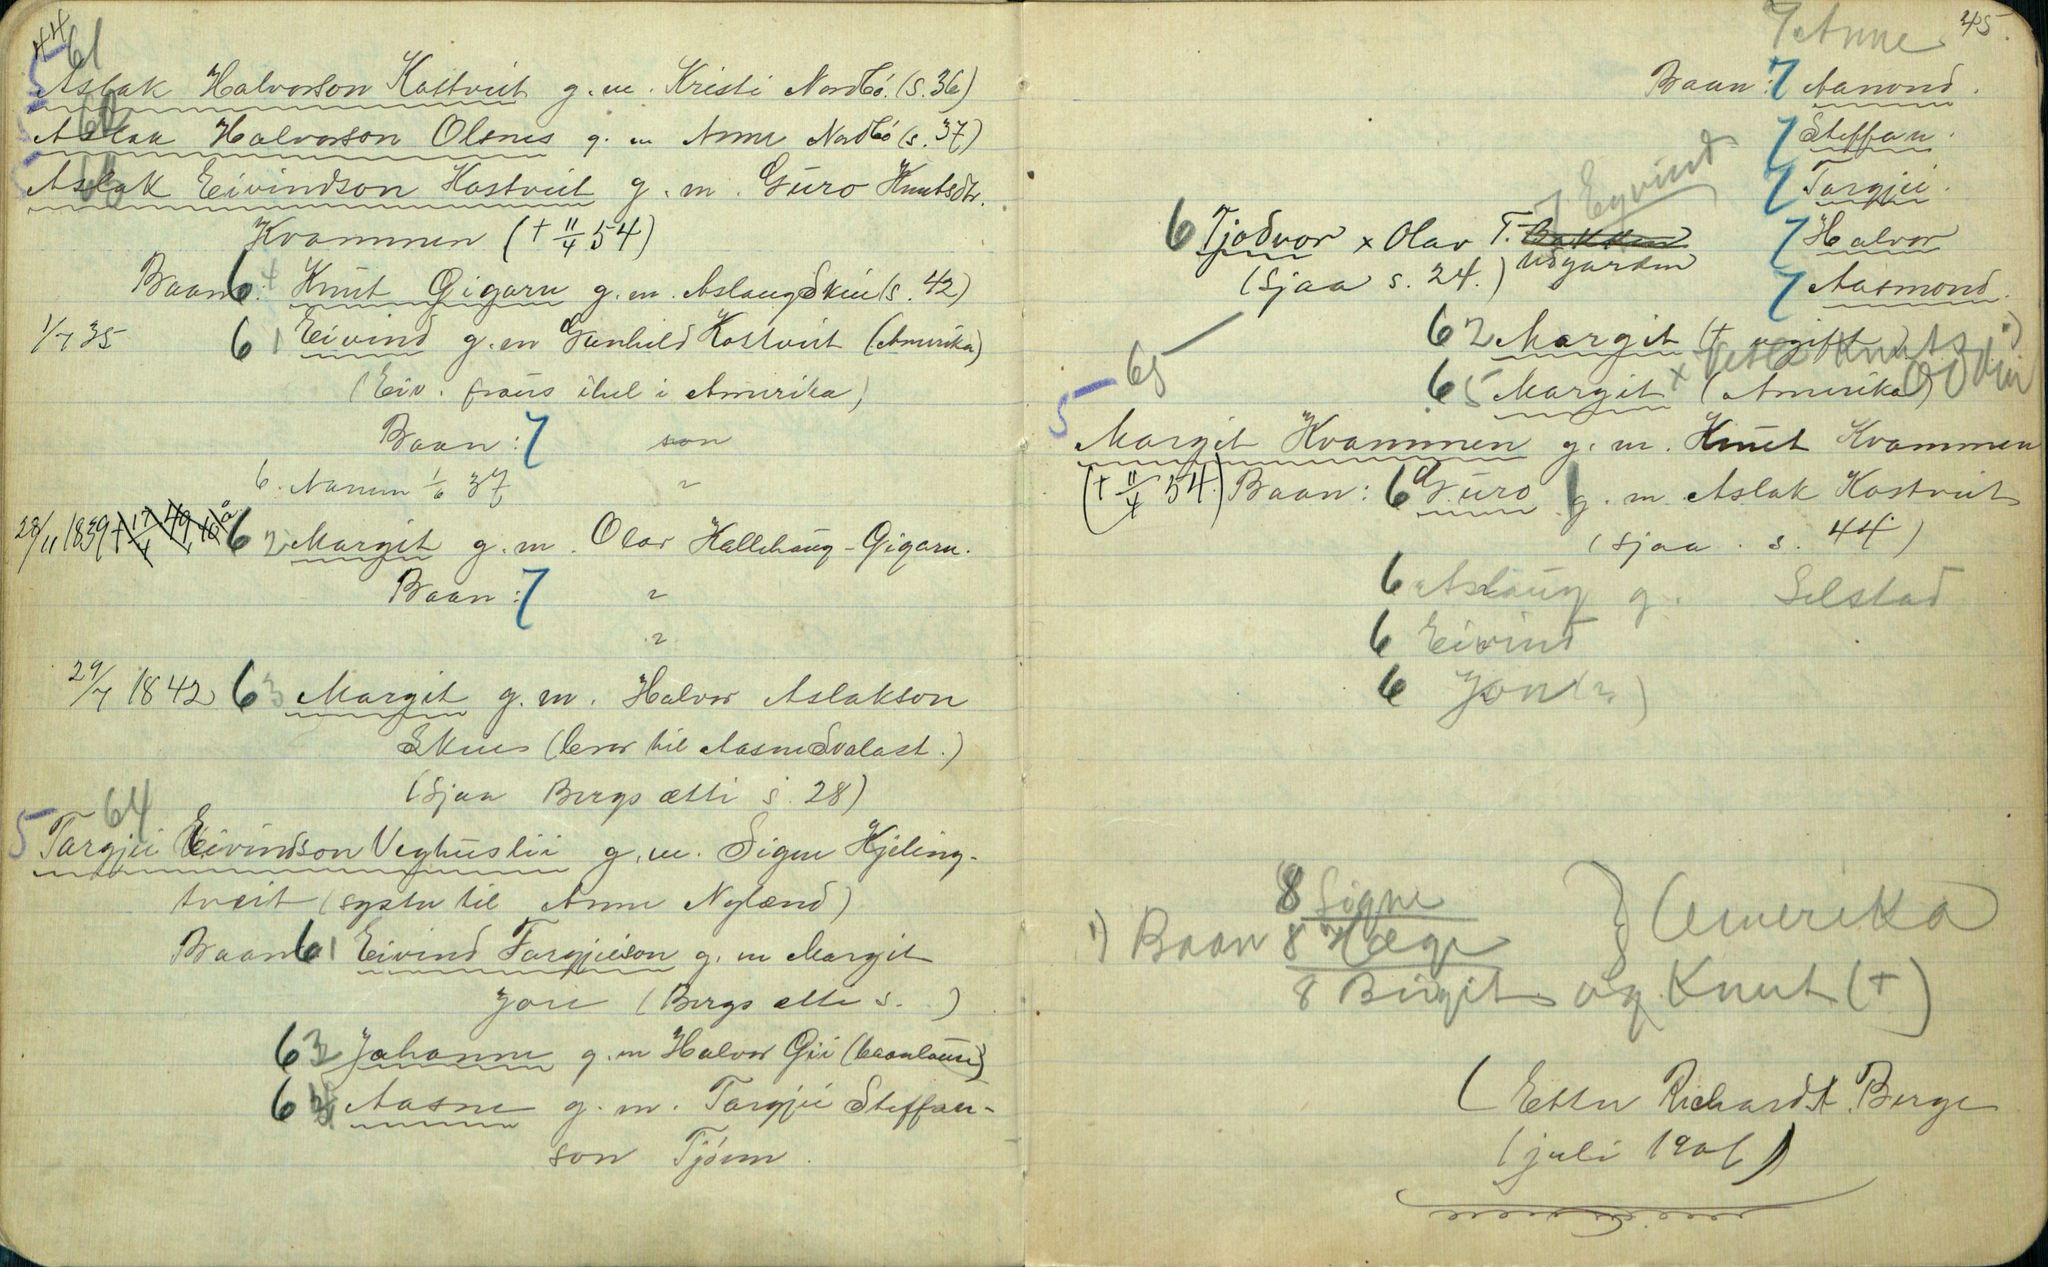 44
61
5 Aslak Halvorson Kostveit g. m. Kristi Nordbö. (s. 36)
60
5 Aslak Halvorson Olsnes g. m Anne Nordbö (s. 37)
5 Aslak Eivindson Kostveit g. m. Guro Knutsdtr.
Kvammen (+ 11/4 54)
Baan: 6 4 Knut Gigarn g. m. Aslaug Skii (s. 42)
1/7 35 6 1 Eivind g. m Gunhild Kostveit (Amerika)
(Eiv. fraus ihel i Amerika)
Baan: 7 son
6. Navnm 1/6 37 "
28/11 1839 + 17/4 49 10 a 6 2 Margit g. m. Olav Kallehaug-Gigarn.
Baan: 7 "
"
29/7 1842 6 3 Margit g. m. Halvor Aslakson
Sknes (bror til Aasne Svalast.)
(Sjaa Bergs ætti s. 28)
64
5 Targjei Eivindson Veghuslii g. m. Signe Hjeling-
tveit (syster til Anne Nyland)
Baan 6 1 Eivind Targjeison g. m Margit
Jore (Bergs ætti s. )
6 3 Johanne g. m Halvor Gii (baanlause)
6 4 Aasne g. m. Targjei Steffan-
son Tjönn.
45.
7 Anne
Baan: 7 Aanond.
7 Steffan.
7 Targjei.
7 Eyvind
7 Halvor
6 Tjodvor x Olav T. Bakken
Udgarden
(Sjaa s. 24.)
7 Aasmond.
6 2 Margit (+ ugift)
x Vetle Knuts 1)
6 5 Margit (Amerika)
65
5 Margit Kvammen g. m. Knut Kvammen
(+ 11/4 54.) Baan: 6 Guro g. m. Aslak Kostveit
(sjaa s. 44)
6 Aslaug g. Selstad
6 Eivind
6 Jon (?)
1) Baan 8 Signe
8 Hæge } Amerika
8 Birgit og Knut (+)
(Etter Richardt Berge
(juli 1901)